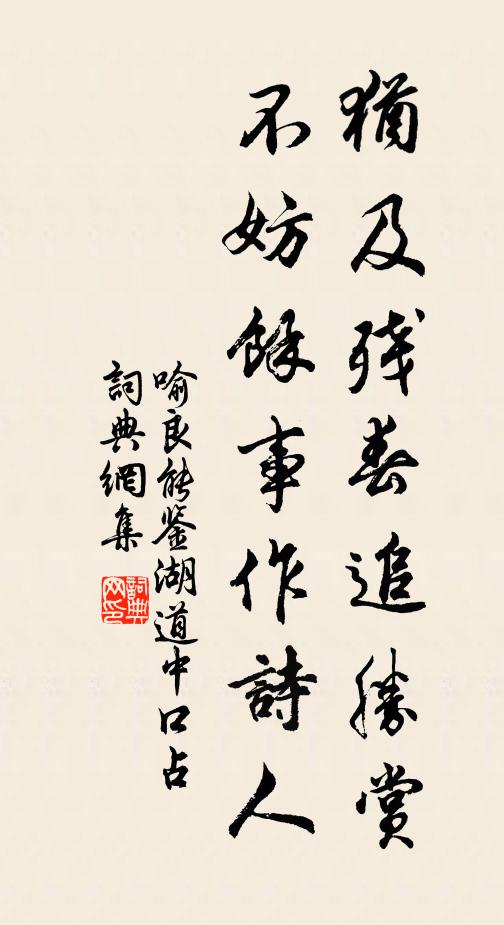 猶及殘春追勝賞
不妨餘事作詩人
喻良能鉴湖道中口占
詞典網集
詞典
网印